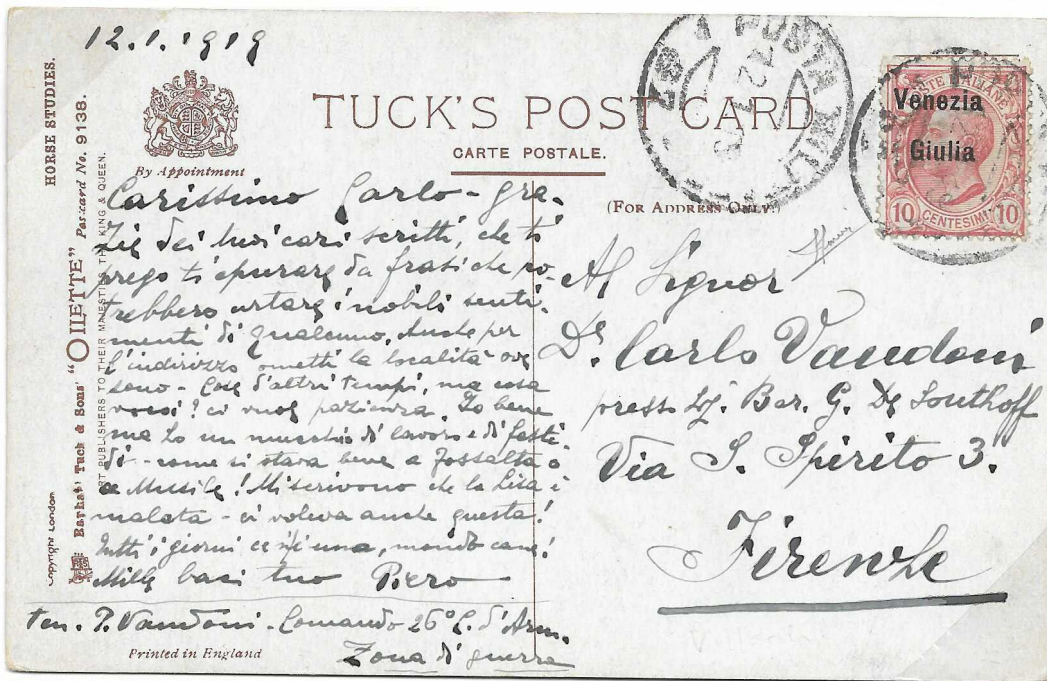 12.1.1919
HORSE STUDIES.
Raphael Tuck & Sons' "OILETTE" Postcard No. 9138.
ART PUBLISHERS TO THEIR MAJESTIES THE KING & QUEEN.
Copyright London
By Appointment
TUCK'S POST CARD
CARTE POSTALE.
(FOR ADDRESS ONLY.)
POSTA MIL
POSTE ITALIANE
Venezia
Giulia
10 CENTESIMI 10
Carissimo Carlo - gra-
zie dei tuoi cari scritti, che ti
prego ti epurare da frasi che po-
trebbero urtare i nobili senti-
menti di qualcuno. Anche per
l'indirizzo ometti la località ove
sono - Cose d'altri tempi, ma cosa
vuoi? ci vuole pazienza. Io bene
ma ho un mucchio di lavoro e di fasti-
di - come si stava bene a Fossalta o
a Musile! Mi scrivono che la Lisa è
malata - ci voleva anche questa!
Tutti i giorni ce n'è una, mondo cane!
Mille baci tuo Piero
ten. P. Vandoni - Comando 26° C. d'Arm.
Zona di guerra
Printed in England
Al Signor
Dr. Carlo Vandoni
presso Bar. G. De Southoff
Via S. Spirito 3.
Firenze